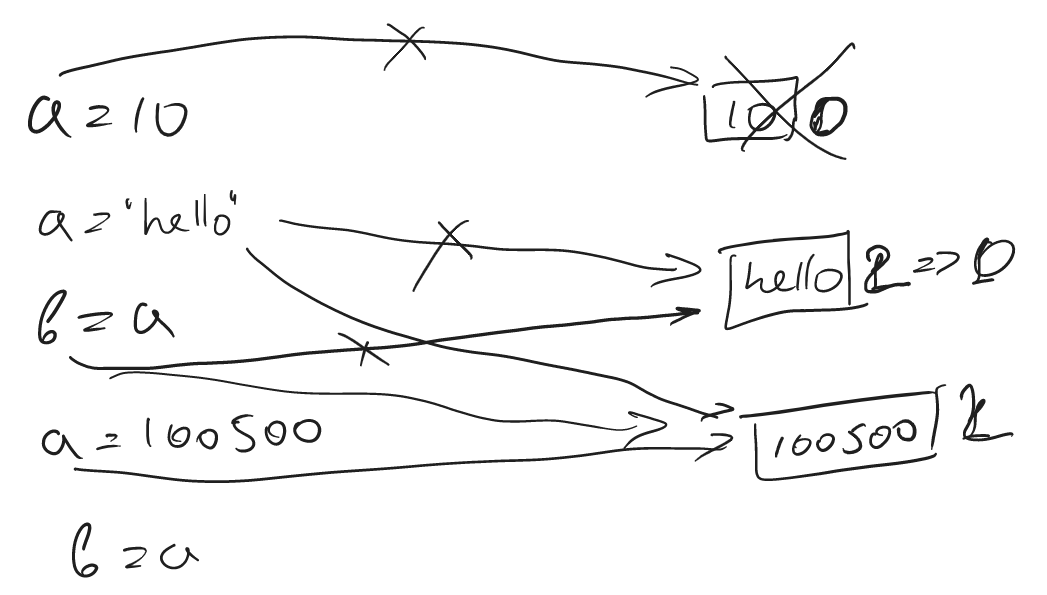 a = 10
10 0
a = "hello"
hello 2 => 0
b = a
a = 100500
100500 2
b = a